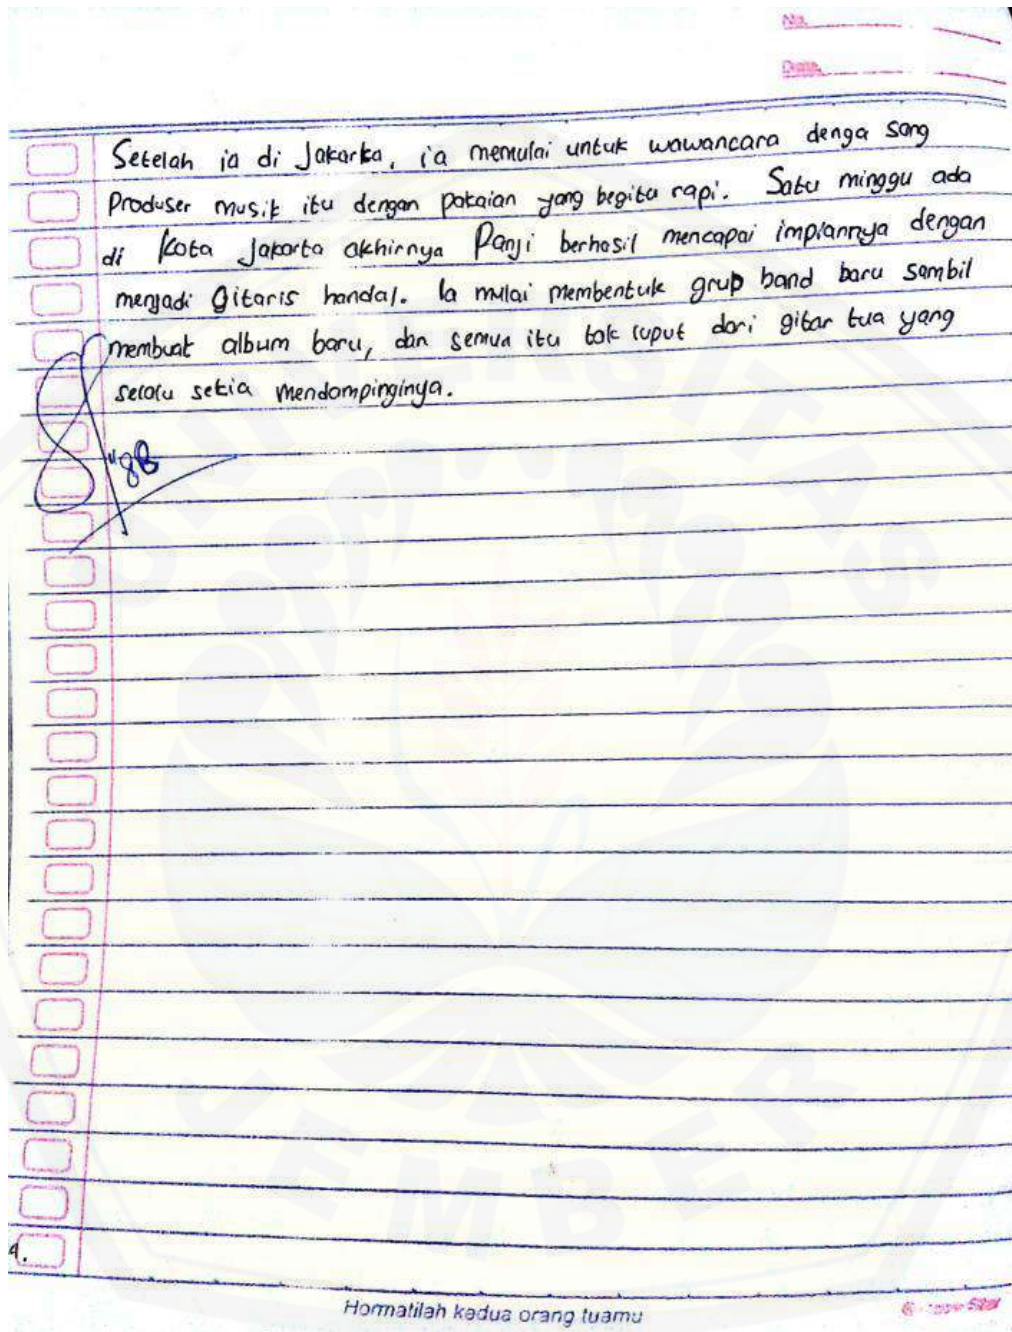 No.
Date.
Setelah ia di Jakarta, ia memulai untuk wawancara denga sang
Produser musik itu dengan pakaian yang begitu rapi. Satu minggu ada
di Kota Jakarta akhirnya Panji berhasil mencapai impiannya dengan
menjadi Gitaris handal. Ia mulai membentuk grup band baru sambil
membuat album baru, dan semua itu tak luput dari gitar tua yang
selalu setia mendampinginya.
8B
UNIVERSITAS
JEMBER
Hormatilah kedua orang tuamu